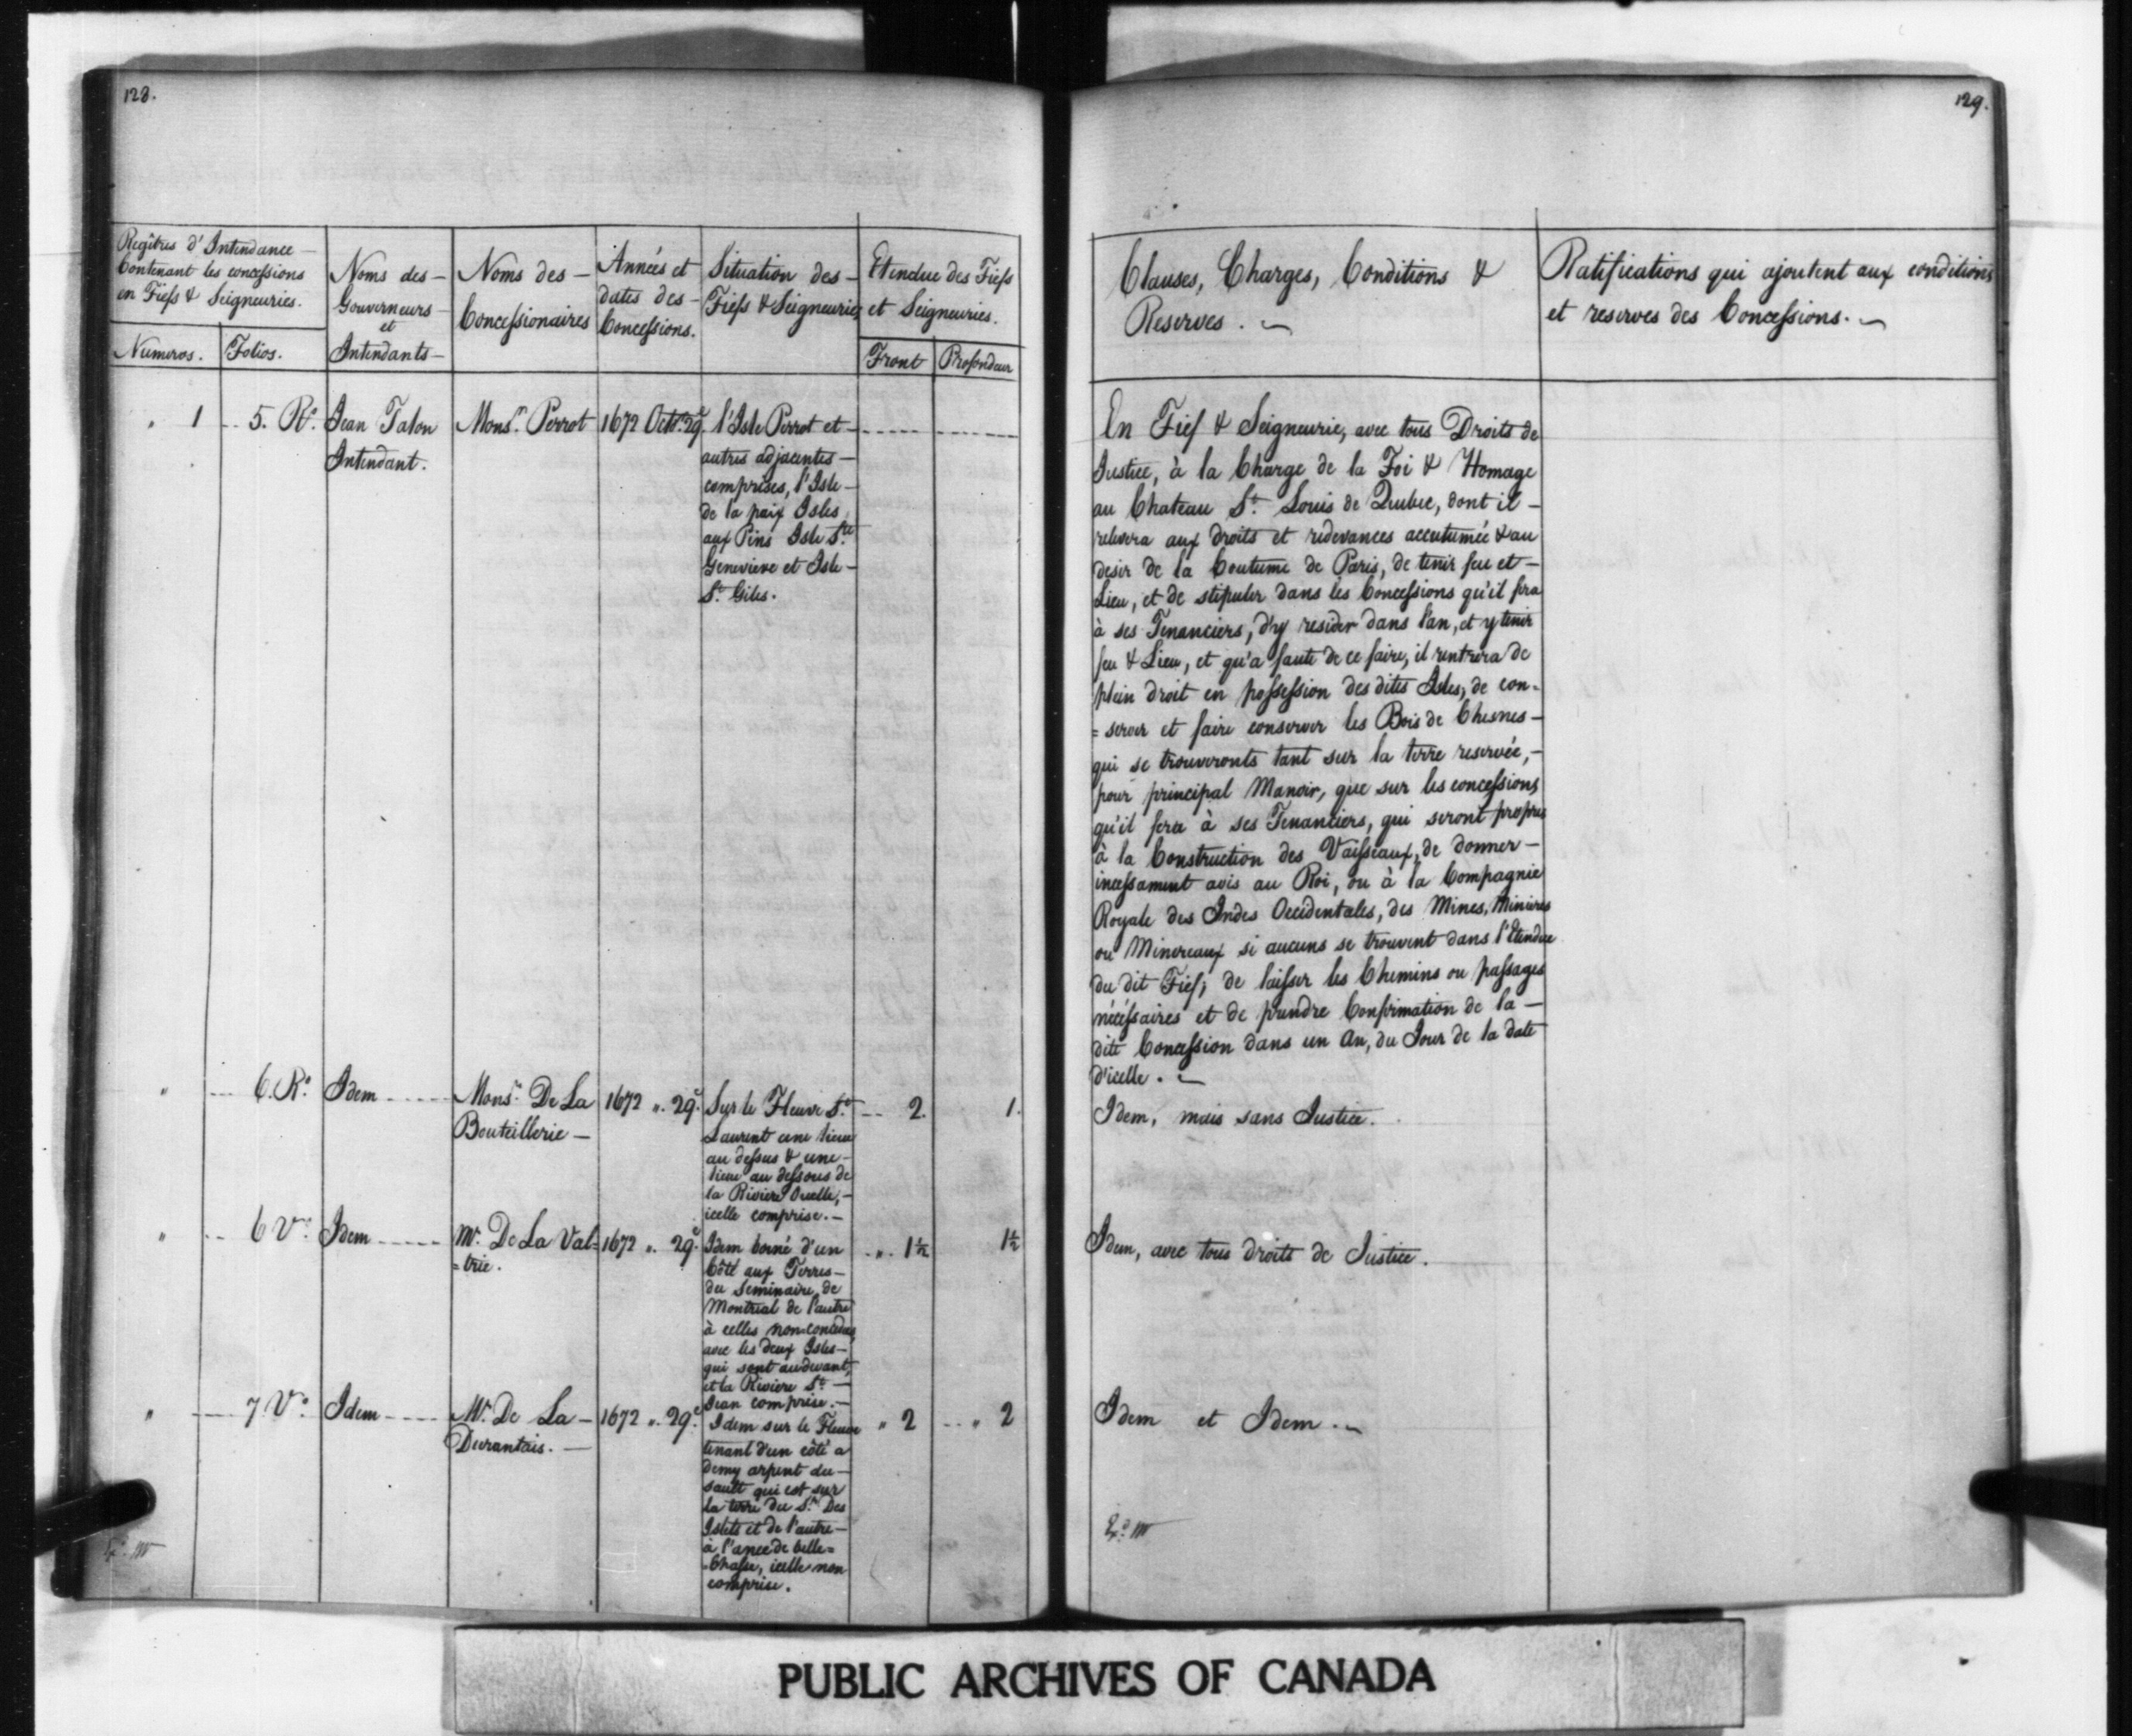 128.
Regîtres d'Intendance
Contenant les concessions
en Fiefs & Seigneuries.
Numeros.
Folios.
Noms des
Gouverneurs
et
Intendants
Noms des
Concessionaires
Années et
dates des
Concessions.
Situation des
Fiefs & Seigneuries
Etendue des Fiefs
et Seigneuries.
Front
Profondeur
" 1
5. Ro.
Jean Talon
Intendant.
Monsr. Perrot
1672 Octr. 29e.
l'Isle Perrot et
autres adjacentes
comprises, l'Isle
de la paix Isles
aux Pins Isle Ste
Genevieve et Isle
St. Giles.
"
6. Ro.
Idem
Monsr. De La
Bouteillerie
1672 „ 29e.
Sur le Fleuve St.
Laurent une lieue
au dessus & une
lieue au dessous de
la Riviere Ouelle,
icelle comprise.
2.
1.
"
6 Vo.
Idem
Mr. De La Val=
=trie.
1672 „ 29e.
Idem borné d'un
Côté aux Terres
du Seminaire de
Montreal de l'autre
à celles non concedées
avec les deux Isles
qui sont au devant,
et la Riviere St.
Jean comprise.
" 1½
1½
"
7 Vo.
Idem
Mr. De La
Durantais.
1672 „ 29e.
Idem sur le Fleuve
tenant d'un côté a
demy arpent du
sault qui est sur
la terre du Sr. Des
Islets et de l'autre
à l'ance de belle=
=Chasse, icelle non
comprise.
" 2
" 2
129.
Clauses, Charges, Conditions &
Reserves.
Ratifications qui ajoutent aux conditions
et reserves des Concessions.
En Fief & Seigneurie, avec tous Droits de
Justice, à la Charge de la Foi & Homage
au Chateau St. Louis de Quebec, dont il
relevera aux droits et redevances accutumée & au
desir de la Coutume de Paris, de tenir feu et
Lieu, et de stipuler dans les Concessions qu'il fra
à ses Tenanciers, d'ry resider dans l'an, et y tenir
feu & Lieu, et qu'a faute de ce faire, il rentrera de
plein droit en possession des dites Isles, de con=
=server et faire conserver les Bois de Chesnes
qui se trouveronts tant sur la terre reservée,
pour principal Manoir, que sur les concessions
qu'il fera à ses Tenanciers, qui seront propres
à la Construction des Vaisseaux, de donner
incessament avis au Roi, ou à la Compagnie
Royale des Indes Occidentales, des Mines, Minieres
ou Minereaux si aucuns se trouvent dans l'Etendue
du dit Fief; de laisser les Chemins ou passages
nécéssaires et de prendre Confirmation de la
dite Concession dans un An, du Jour de la date
d'icelle.
Idem, mais sans Justice.
Idem, avec tous droits de Justice.
Idem et Idem.
PUBLIC ARCHIVES OF CANADA